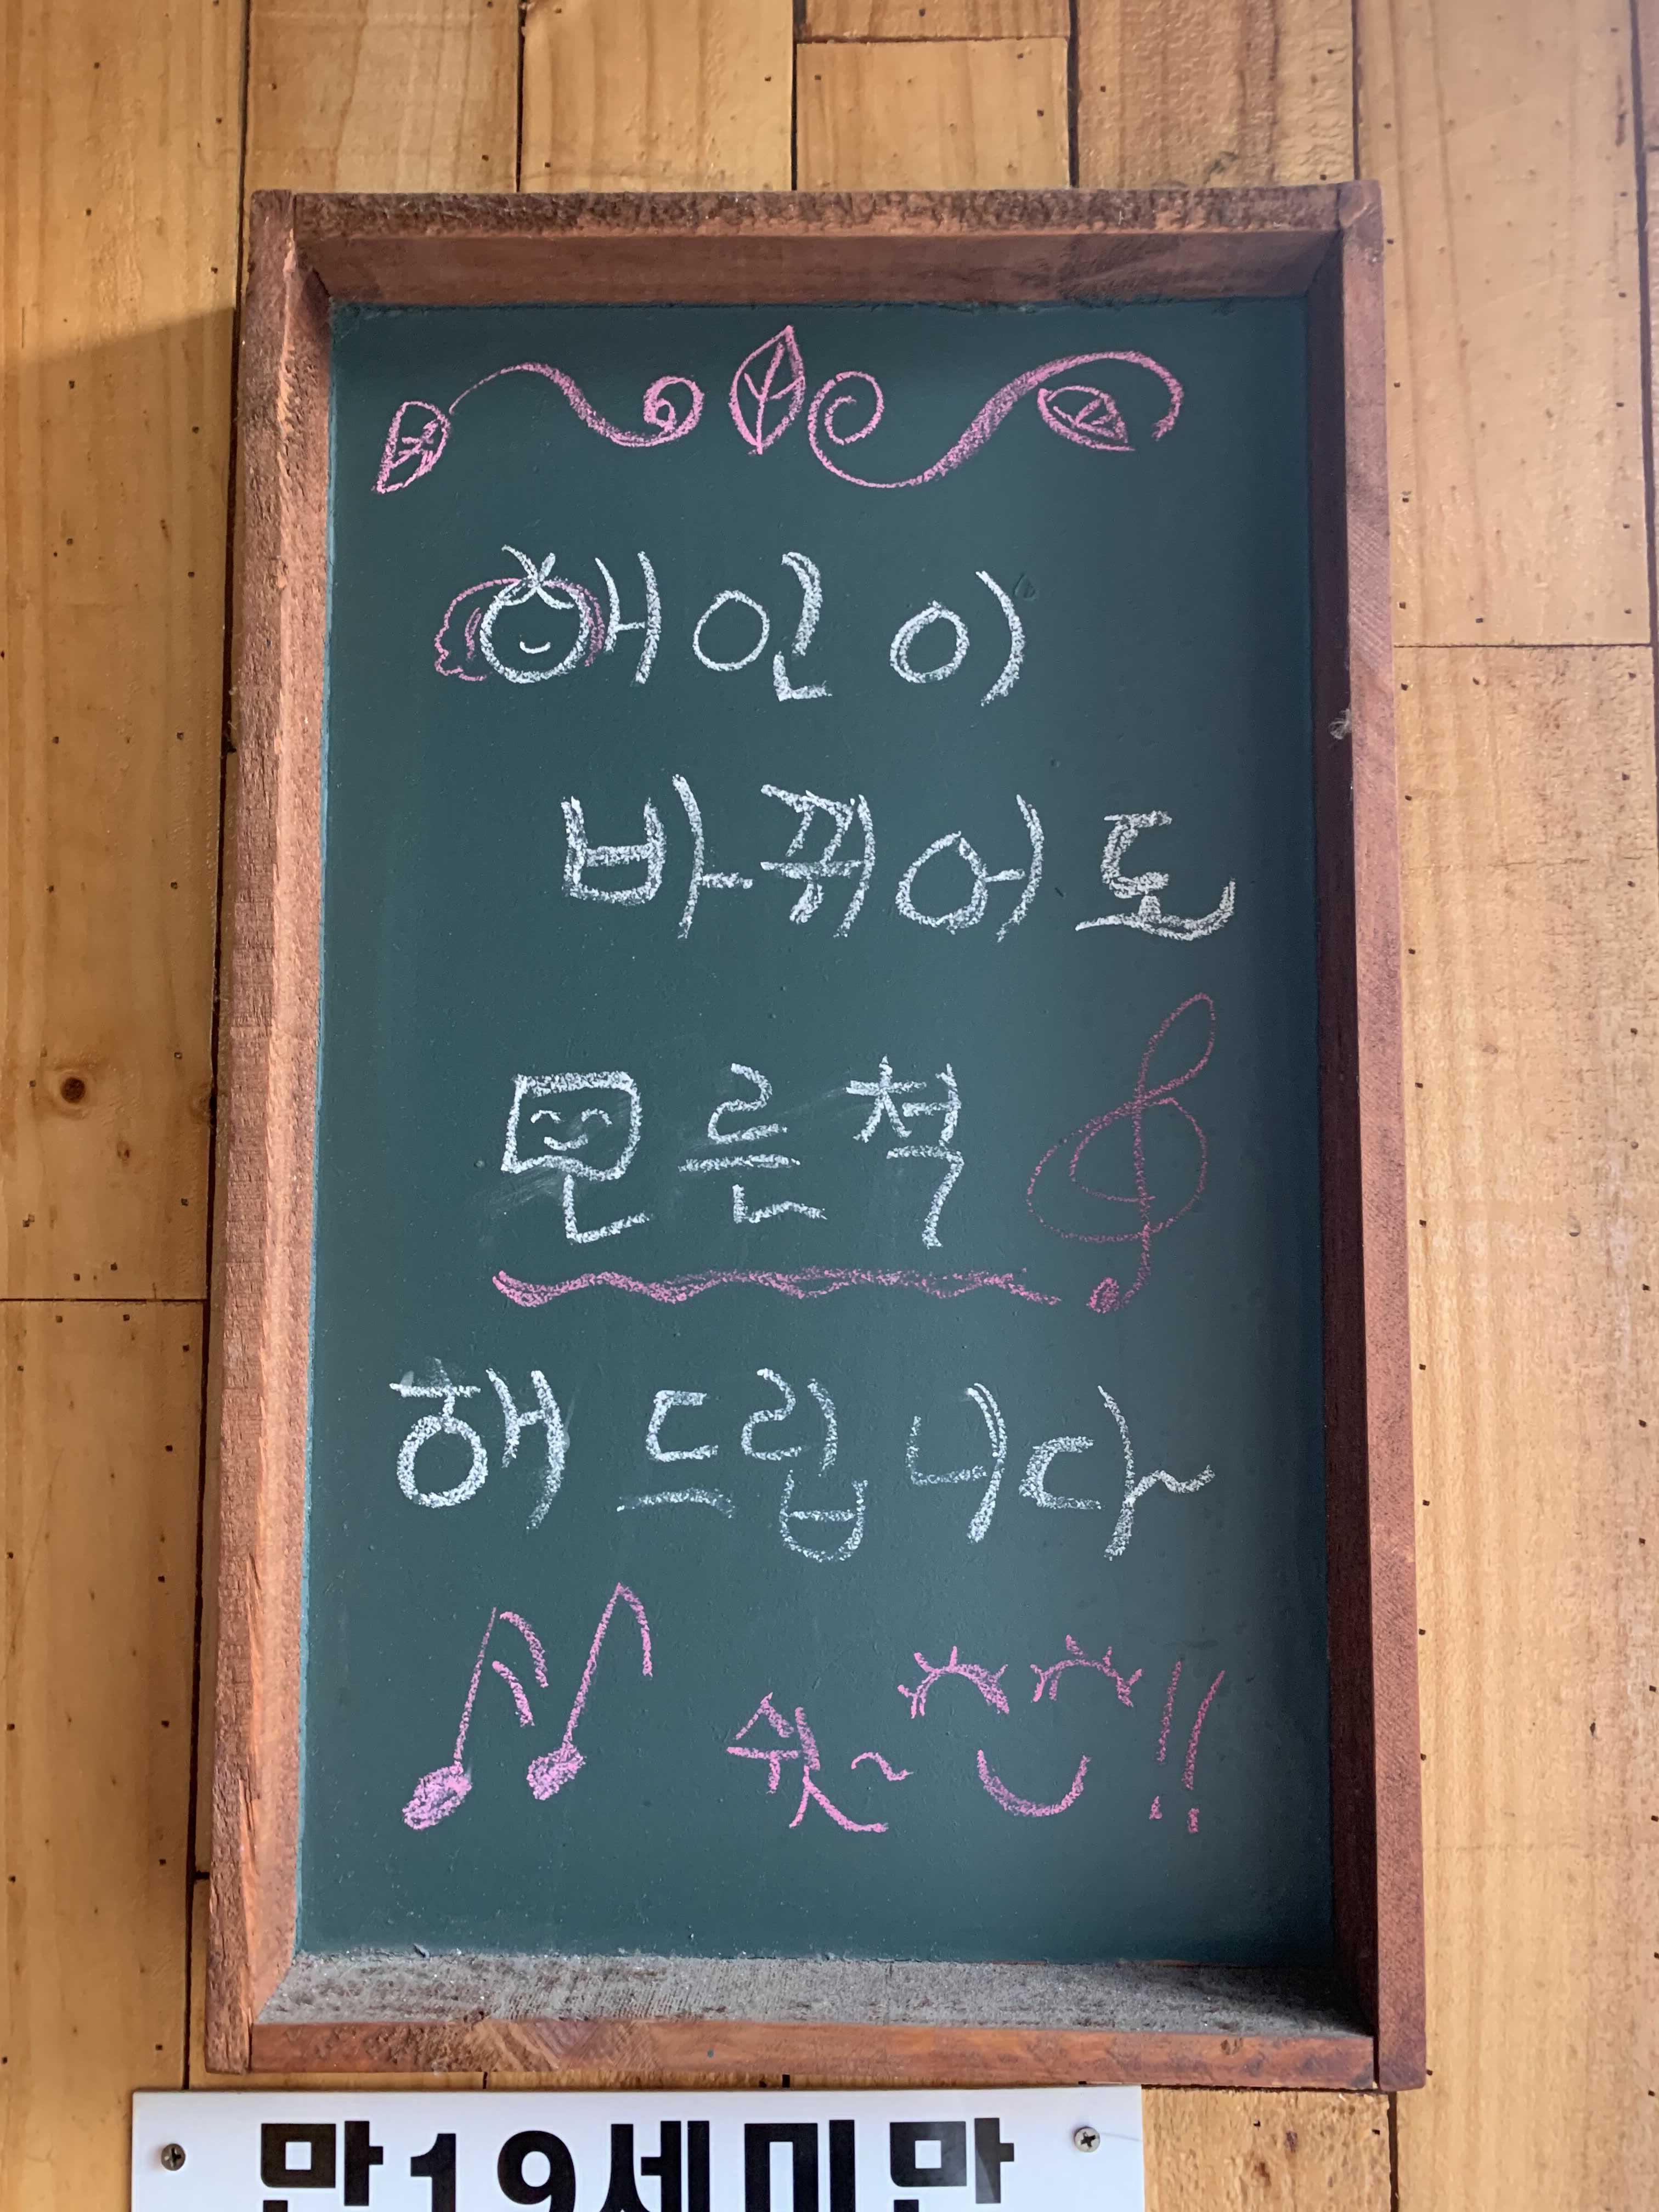 애인이
바뀌어도
모른척
해드립니다
쉿~!!
만19세미만